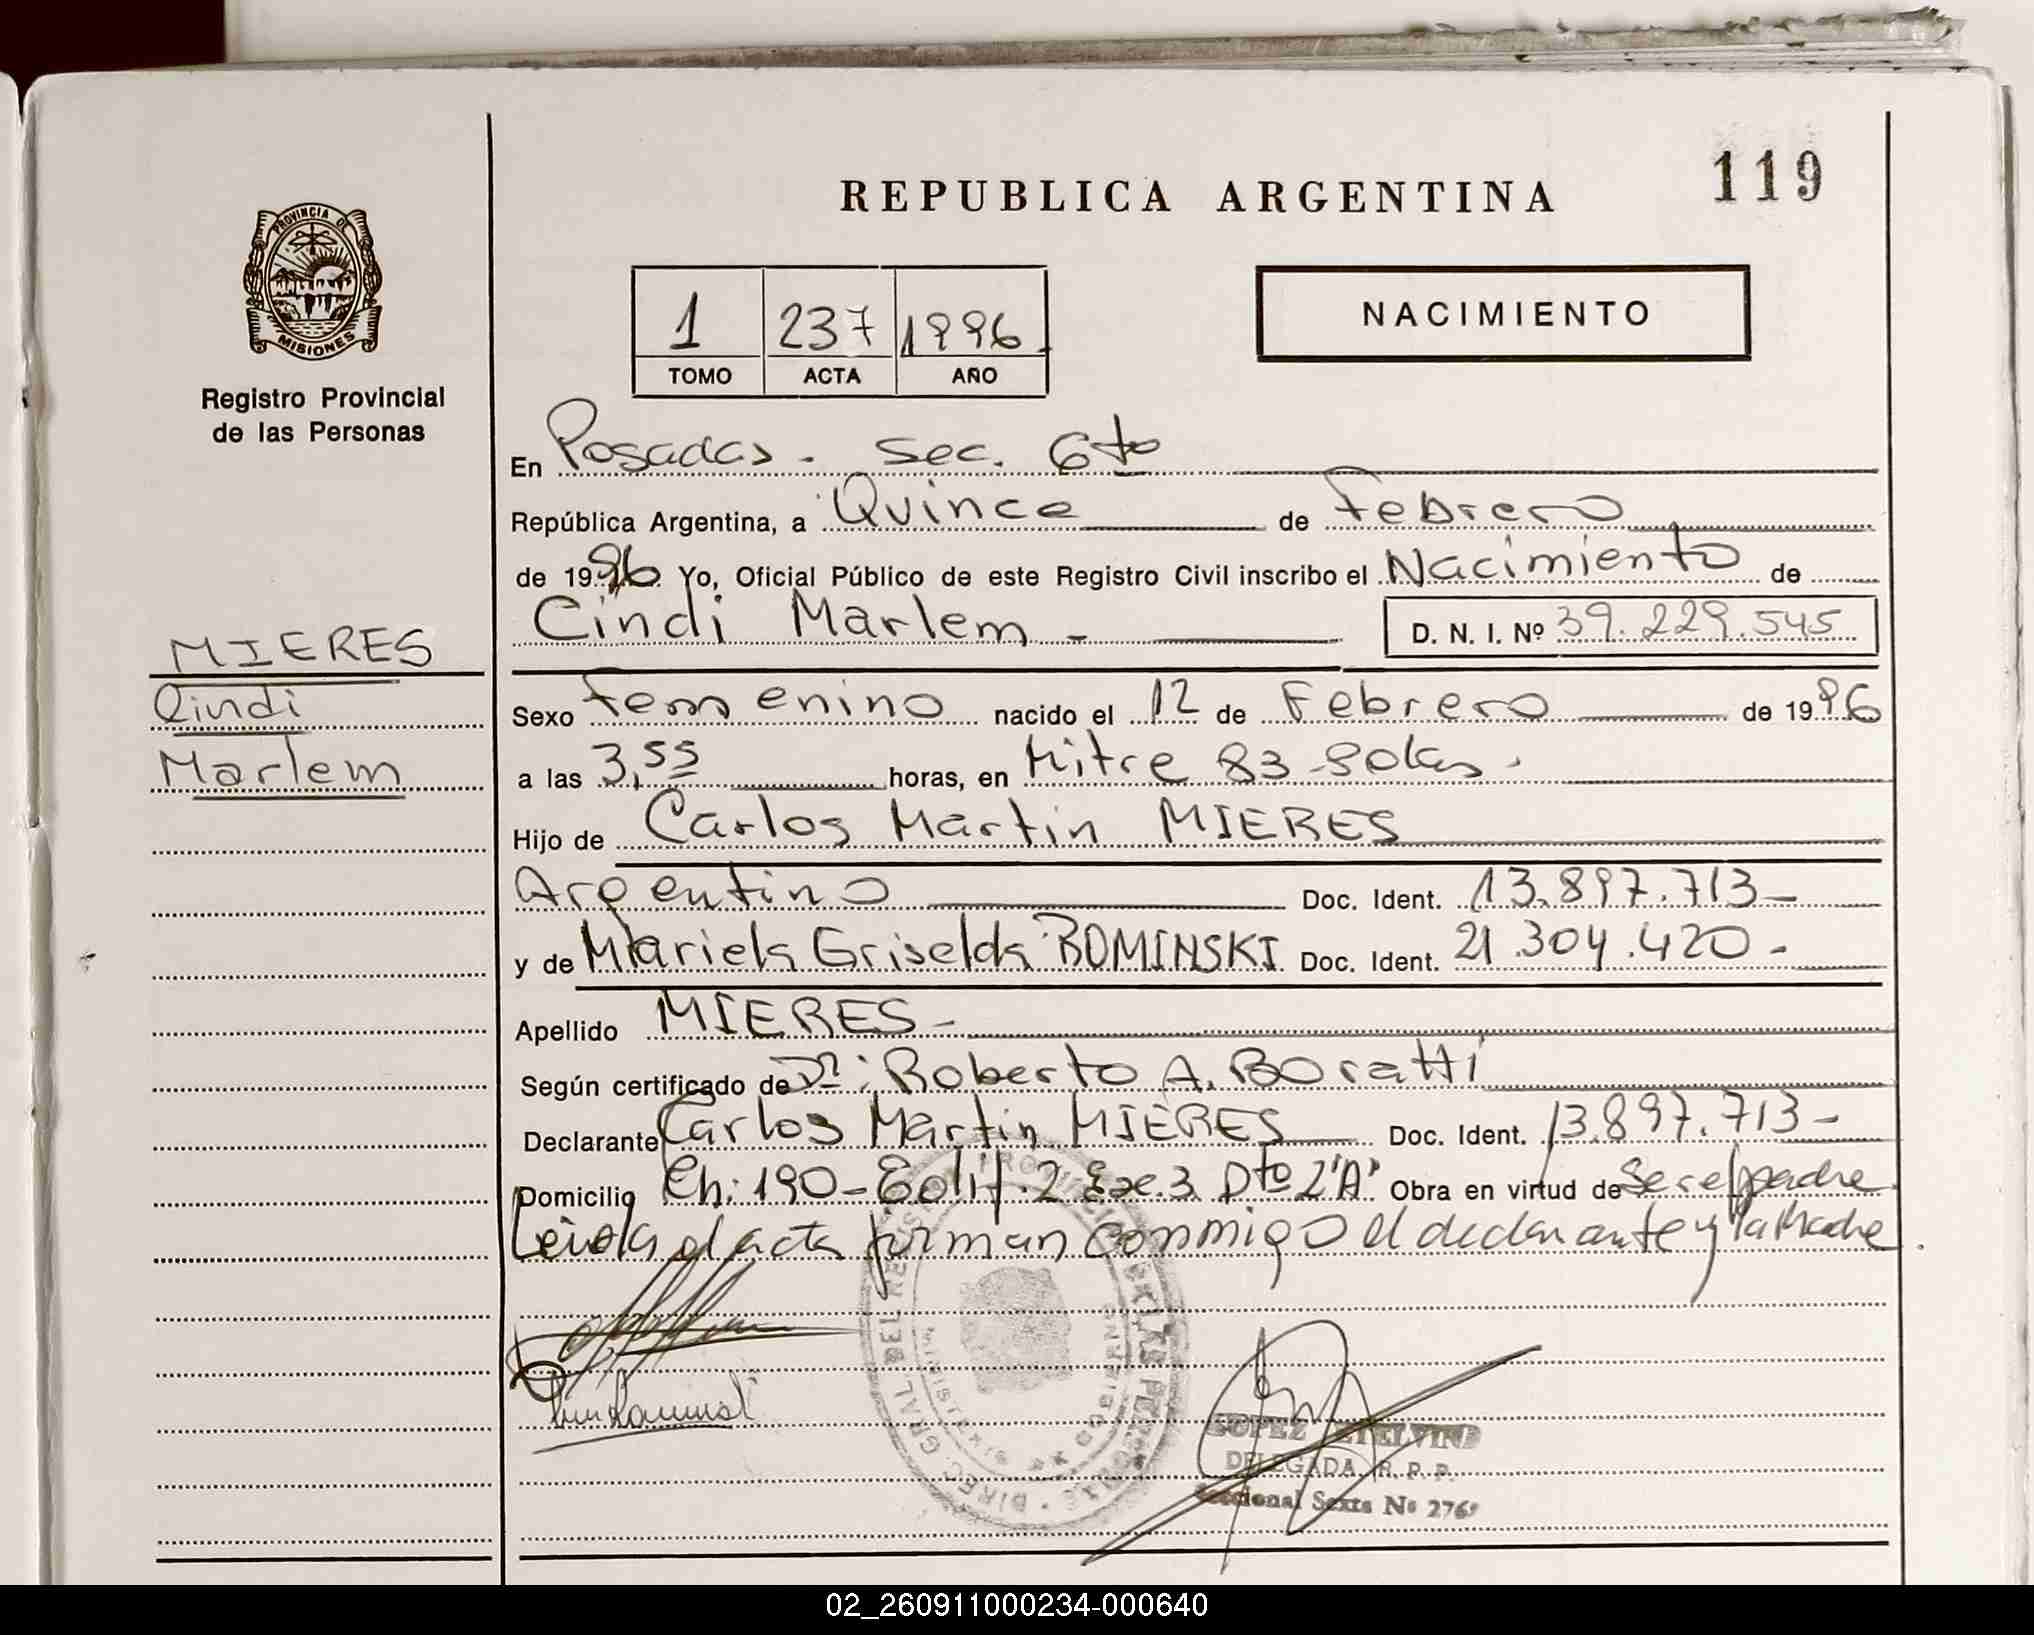 119
REPUBLICA ARGENTINA
PROVINCIA DE
MISIONES
Registro Provincial
de las Personas
NACIMIENTO
1 237 1996
TOMO ACTA AÑO
En Posadas. Sec. 6to
República Argentina, a Quince de Febrero
de 1996 Yo, Oficial Público de este Registro Civil inscribo el Nacimiento de
Cindi Marlem - D. N. I. Nº 39.229.545
MIERES
Cindi
Marlem
Sexo Femenino nacido el 12 de Febrero de 1996
a las 3,55 horas, en Mitre 83
Hijo de Carlos Martin MIERES
Argentino Doc. Ident. 13.897.713-
y de Mariela Griselda ROMINSKI Doc. Ident. 21.304.420-
Apellido MIERES-
Según certificado de Dr: Roberto A. Boratti
Declarante Carlos Martin MIERES Doc. Ident. 13.897.713-
Domicilio Ch: 190- Edif. 2 Esc. 3 Dto 2"A" Obra en virtud de Ser el padre
Leida el acta firman conmigo el declarante y la Madre.
LOPEZ ETELVINO
DELEGADA R. P. P.
Seccional Sexta Nº 276
02_260911000234-000640